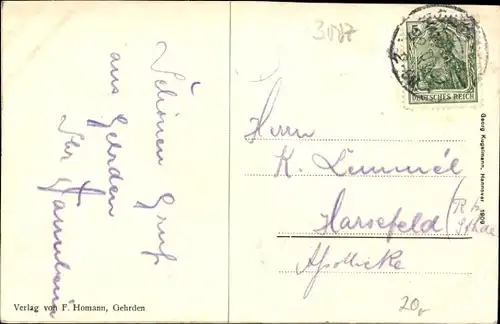 3087
DEUTSCHES REICH
Schönen Gruß
aus Gehrden
Ihr
Herrn
K. Lemmél
Harsefeld
Apotheke
20
Verlag von F. Homann, Gehrden
Georg Kugelmann, Hannover 1909